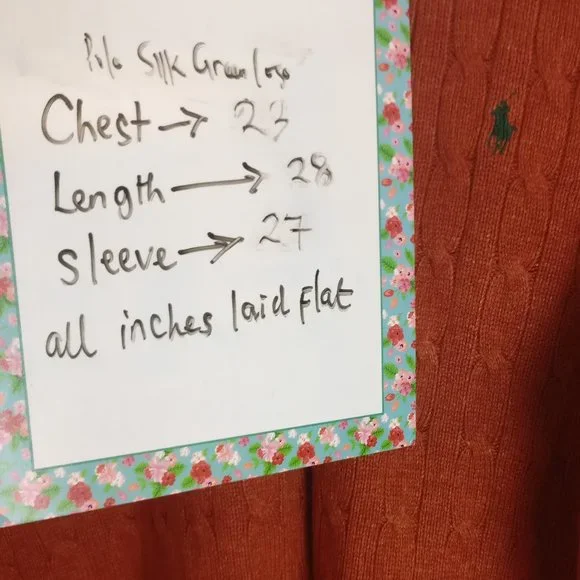 Polo Silk Green logo
Chest → 23
Length → 28
sleeve → 27
all inches laid flat